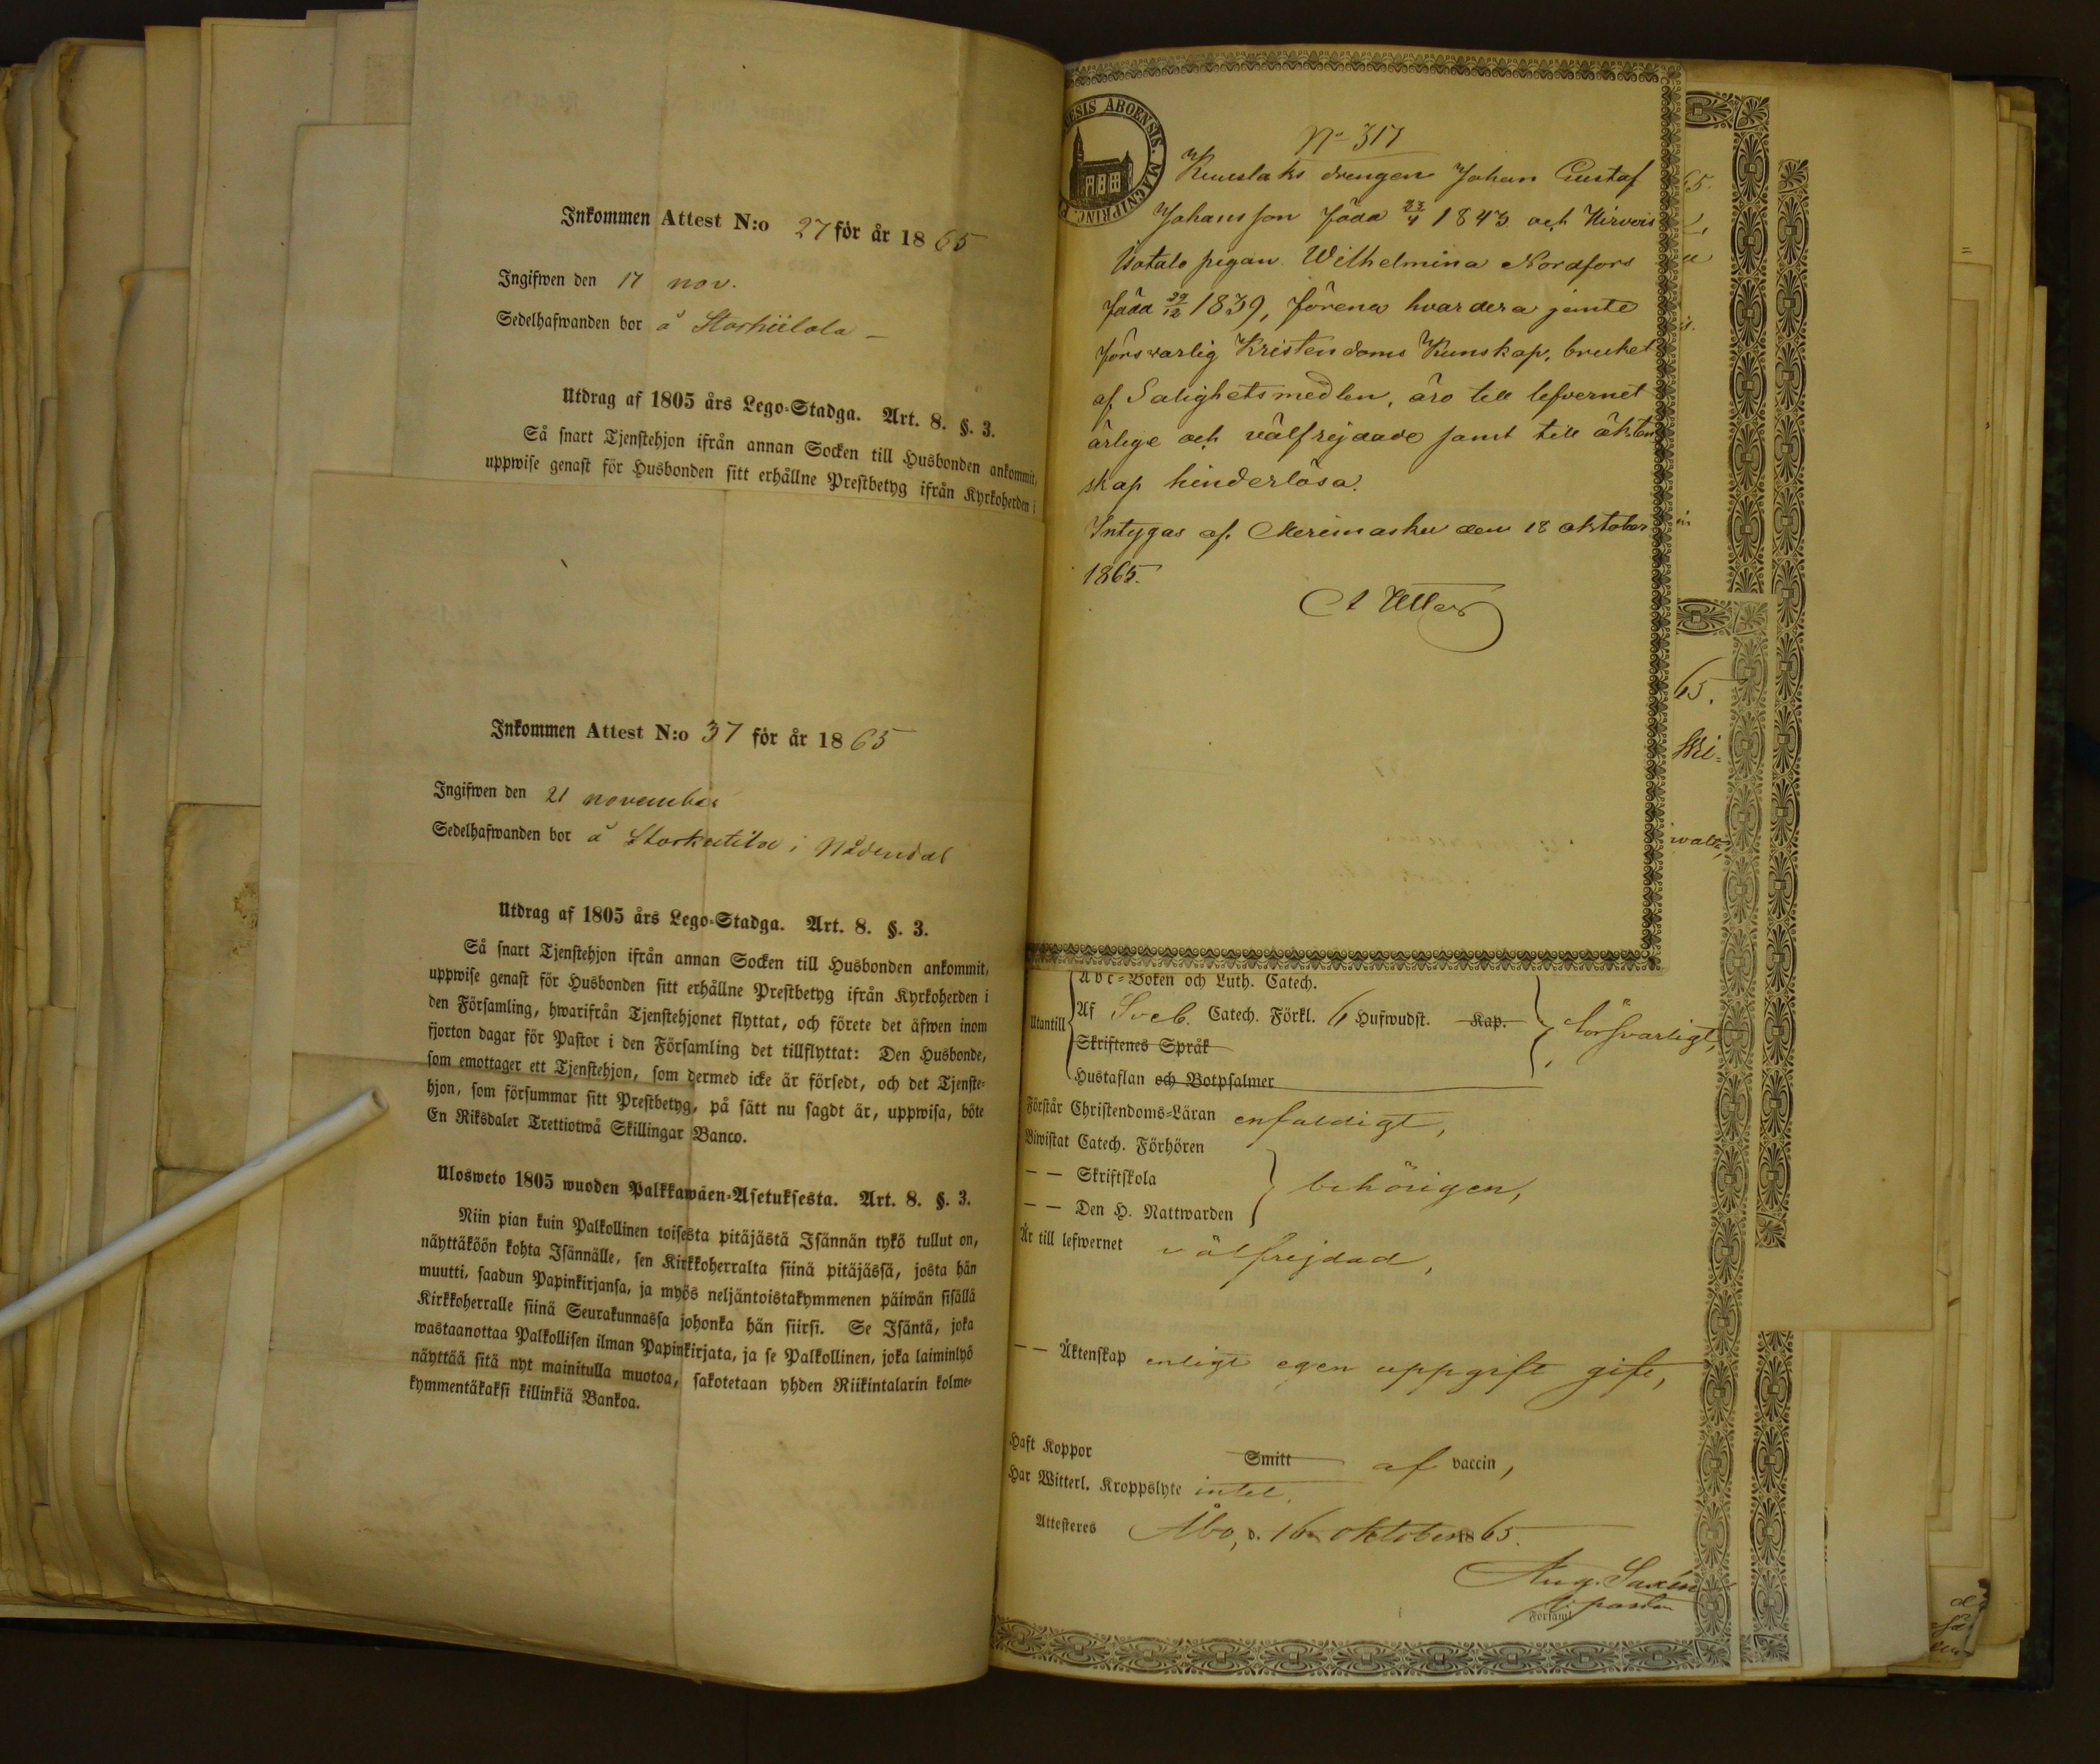 Inkommen Attest N:o 27 för år 1865
Ingifwen den 17 nov.
Sedelhafwanden bor å Storhiilola –
Utdrag af 1805 års Lego-Stadga. Art. 8. §. 3.
Så snart Tjenstehjon ifrån annan Socken till Husbonden ankommit,
uppwise genast för Husbonden sitt erhållne Prestbetyg ifrån Kyrkoherden i
Inkommen Attest N:o 37 för år 1865
Ingifwen den 21 november
Sedelhafwanden bor å i Nådendal
Utdrag af 1805 års Lego-Stadga. Art. 8. §. 3.
Så snart Tjenstehjon ifrån annan Socken till Husbonden ankommit,
uppwise genast för Husbonden sitt erhållne Prestbetyg ifrån Kyrkoherden i
den Församling, hwarifrån Tjenstehjonet flyttat, och förete det äfwen inom
fjorton dagar för Pastor i den Församling det tillflyttat: Den Husbonde,
som emottager ett Tjenstehjon, som dermed icke är försedt, och det Tjenste-
hjon, som försummar sitt Prestbetyg, på sätt nu sagdt är, uppwisa, böte
En Riksdaler Trettiotwå Skillingar Banco.
Ulosweto 1805 wuoden Palkkawäen-Asetuksesta. Art. 8. §. 3.
Niin pian kuin Palkollinen toisesta pitäjästä Isännän tykö tullut on,
näyttäköön kohta Isännälle, sen Kirkkoherralta siinä pitäjässä, josta hän
muutti, saadun Papinkirjansa, ja myös neljäntoistakymmenen päiwän sisällä
Kirkkoherralle siinä Seurakunnassa johonka hän siirsi. Se Isäntä, joka
wastaanottaa Palkollisen ilman Papinkirjata, ja se Palkollinen, joka laiminlyö
näyttää sitä nyt mainitulla muotoa, sakotetaan yhden Riikintalarin kolme-
kymmentäkaksi killinkiä Bankoa.
ESIS ABOENSIS. MAGNIPRINC.
No 317
drengen Johan Gustaf
Johansson född 23/4 1843 och Hirvois
Isotalo pigan Wilhelmina Nordfors
född 29/12 1839, förena hvardera jemte
försvarlig Kristendoms Kunskap, bruket
af Salighetsmedlen, äro till lefvernet
ärlige och välfrejdade samt till äkten
skap hinderlösa.
Intygas af. Merimasku den 18 oktober
1865.
65.
65.
Abc-Boken och Luth. Catech.
Utantill Af Sveb. Catech. Förkl. 6 Hufwudst. Kap. försvarligt,
Skriftenes Språk
Hustaflan och Botpsalmer
Förstår Christendoms-Läran enfaldigt,
Biwistat Catech. Förhören
— — Skriftskola behörigen,
— — Den H. Nattwarden
Är till lefwernet välfrejdad,
— — Äktenskap enligt egen uppgift gift,
Haft Koppor Smitt af vaccin,
Har Witterl. Kroppslyte intet.
Attesteres Åbo, d. 16 oktober 1865.
Aug. Saxén
Församl